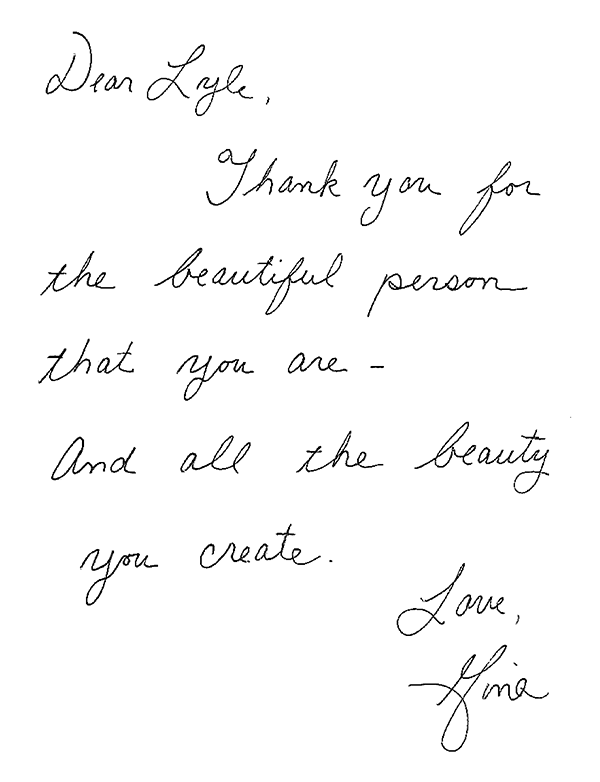 Dear Lyle,
Thank you for
the beautiful person
that you are -
And all the beauty
you create.
Love,
Gina